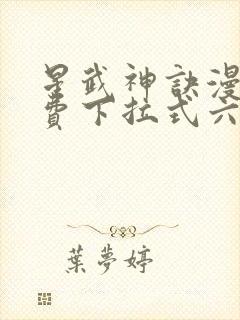 星武神訣漫
費下拉式六
葉夢婷